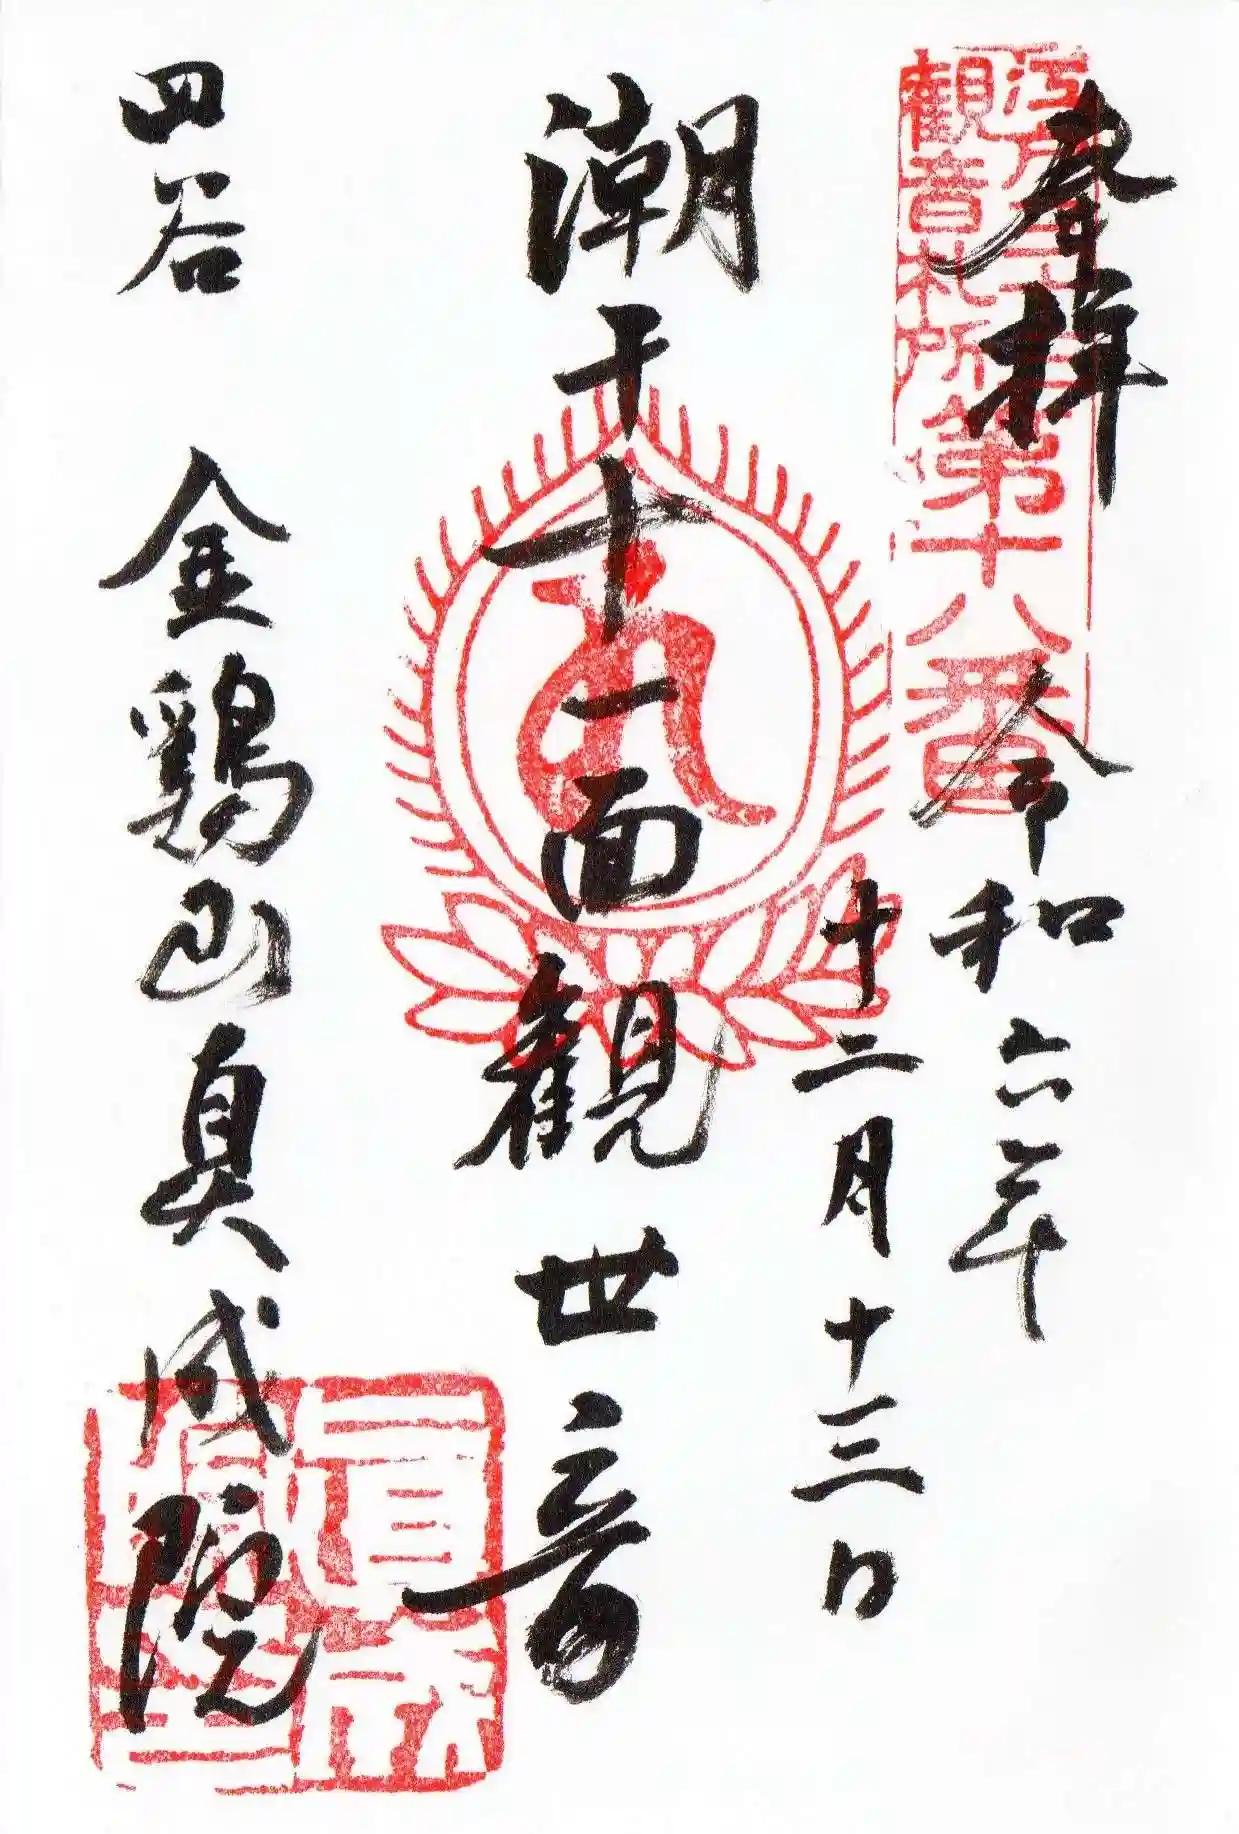 奉拝
江戸三十三
観音札所第十八番
令和六年
十二月十三日
潮干十一面観世音
四谷 金鶏山真成院